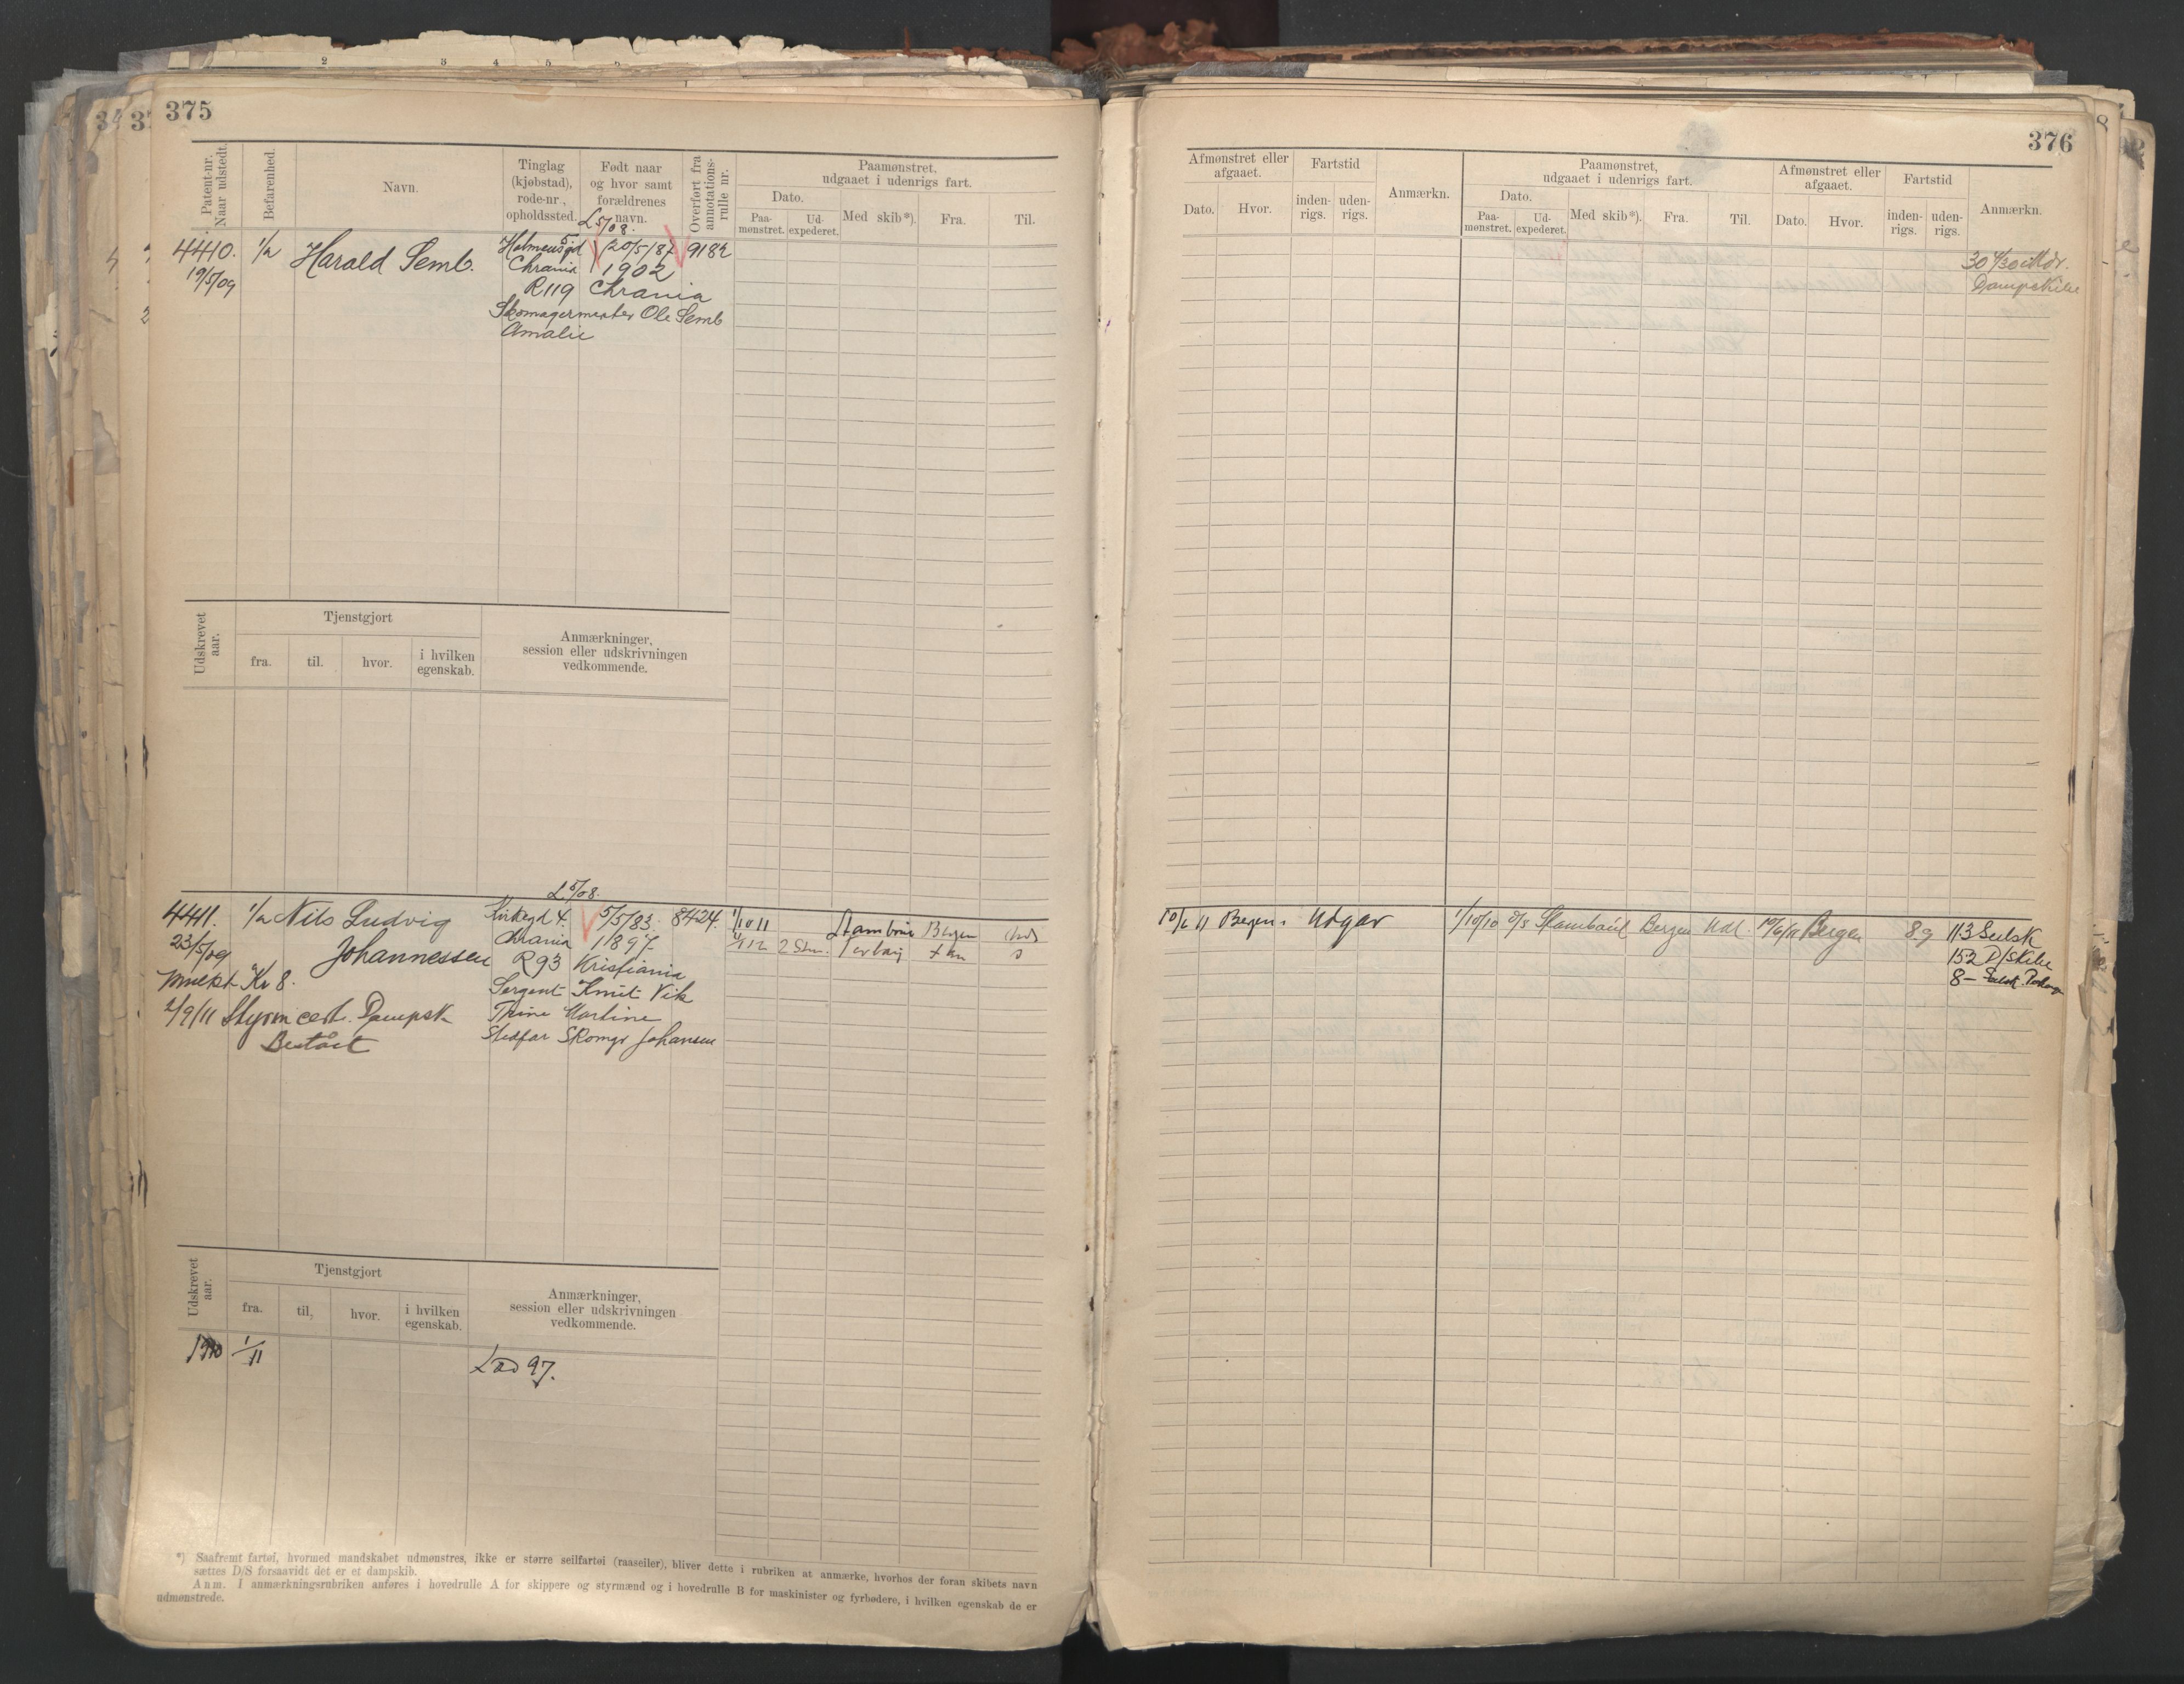 375
Patent-nr. Naar udstedt.
Befarenhed.
Navn.
Tinglag (kjøbstad), rode-nr., opholdssted.
Født naar og hvor samt forældrenes navn.
Overført fra annotations-rulle nr.
Paamønstret, udgaaet i udenrigs fart.
Dato.
Paa-mønstret.
Ud-expederet.
Med skib*).
Fra.
Til.
L 5/08.
4410. 1/2 Harald Semb. Holmensgd 20/5/87 9182
19/5/09 Chrania 1902
R119 Chrania
Skomagermester Ole Semb
Amalie
Udskrevet aar.
Tjenstgjort
fra. til. hvor. i hvilken egenskab.
Anmærkninger, session eller udskrivningen vedkommende.
L 5/08.
4411. 1/2 Nils Ludvig Kirkegd 4. 5/5/83. 8424. 1/10 11 Bergen
23/5/09 Johannessen Chrania 1897 2 Stm.
R93 Kristiania
Mulkt Kr 8. Sergent Knut Vik
2/9/11 Styrm cert. Dampsk Trine Martine
Bestået Stedfar Skomgr Johansen
Udskrevet aar.
Tjenstgjort
fra. til, hvor. i hvilken egenskab.
Anmærkninger, session eller udskrivningen vedkommende.
1910 1/11 97.
*) Saafremt fartøi, hvormed mandskabet udmønstres, ikke er større seilfartøi (raaseiler), bliver dette i rubriken at anmærke, hvorhos der foran skibets navn
sættes D/S forsaavidt det er et dampskib.
Anm. I anmærkningsrubriken anføres i hovedrulle A for skippere og styrmænd og i hovedrulle B for maskinister og fyrbødere, i hvilken egenskab de er
udmønstrede.
376
Afmønstret eller afgaaet.
Dato. Hvor.
Fartstid
inden-rigs. uden-rigs.
Anmærkn.
Paamønstret, udgaaet i udenrigs fart.
Dato.
Paa-mønstret.
Ud-expederet.
Med skib*).
Fra.
Til.
Afmønstret eller afgaaet.
Dato. Hvor.
Fartstid
inden-rigs. uden-rigs.
Anmærkn.
Dampskibe
10/6 11 Bergen. Udgar 1/10/10 Bergen Udl. 10/6/11 Bergen 8.9 11.3 Seilsk
152 D/skibe
8 –